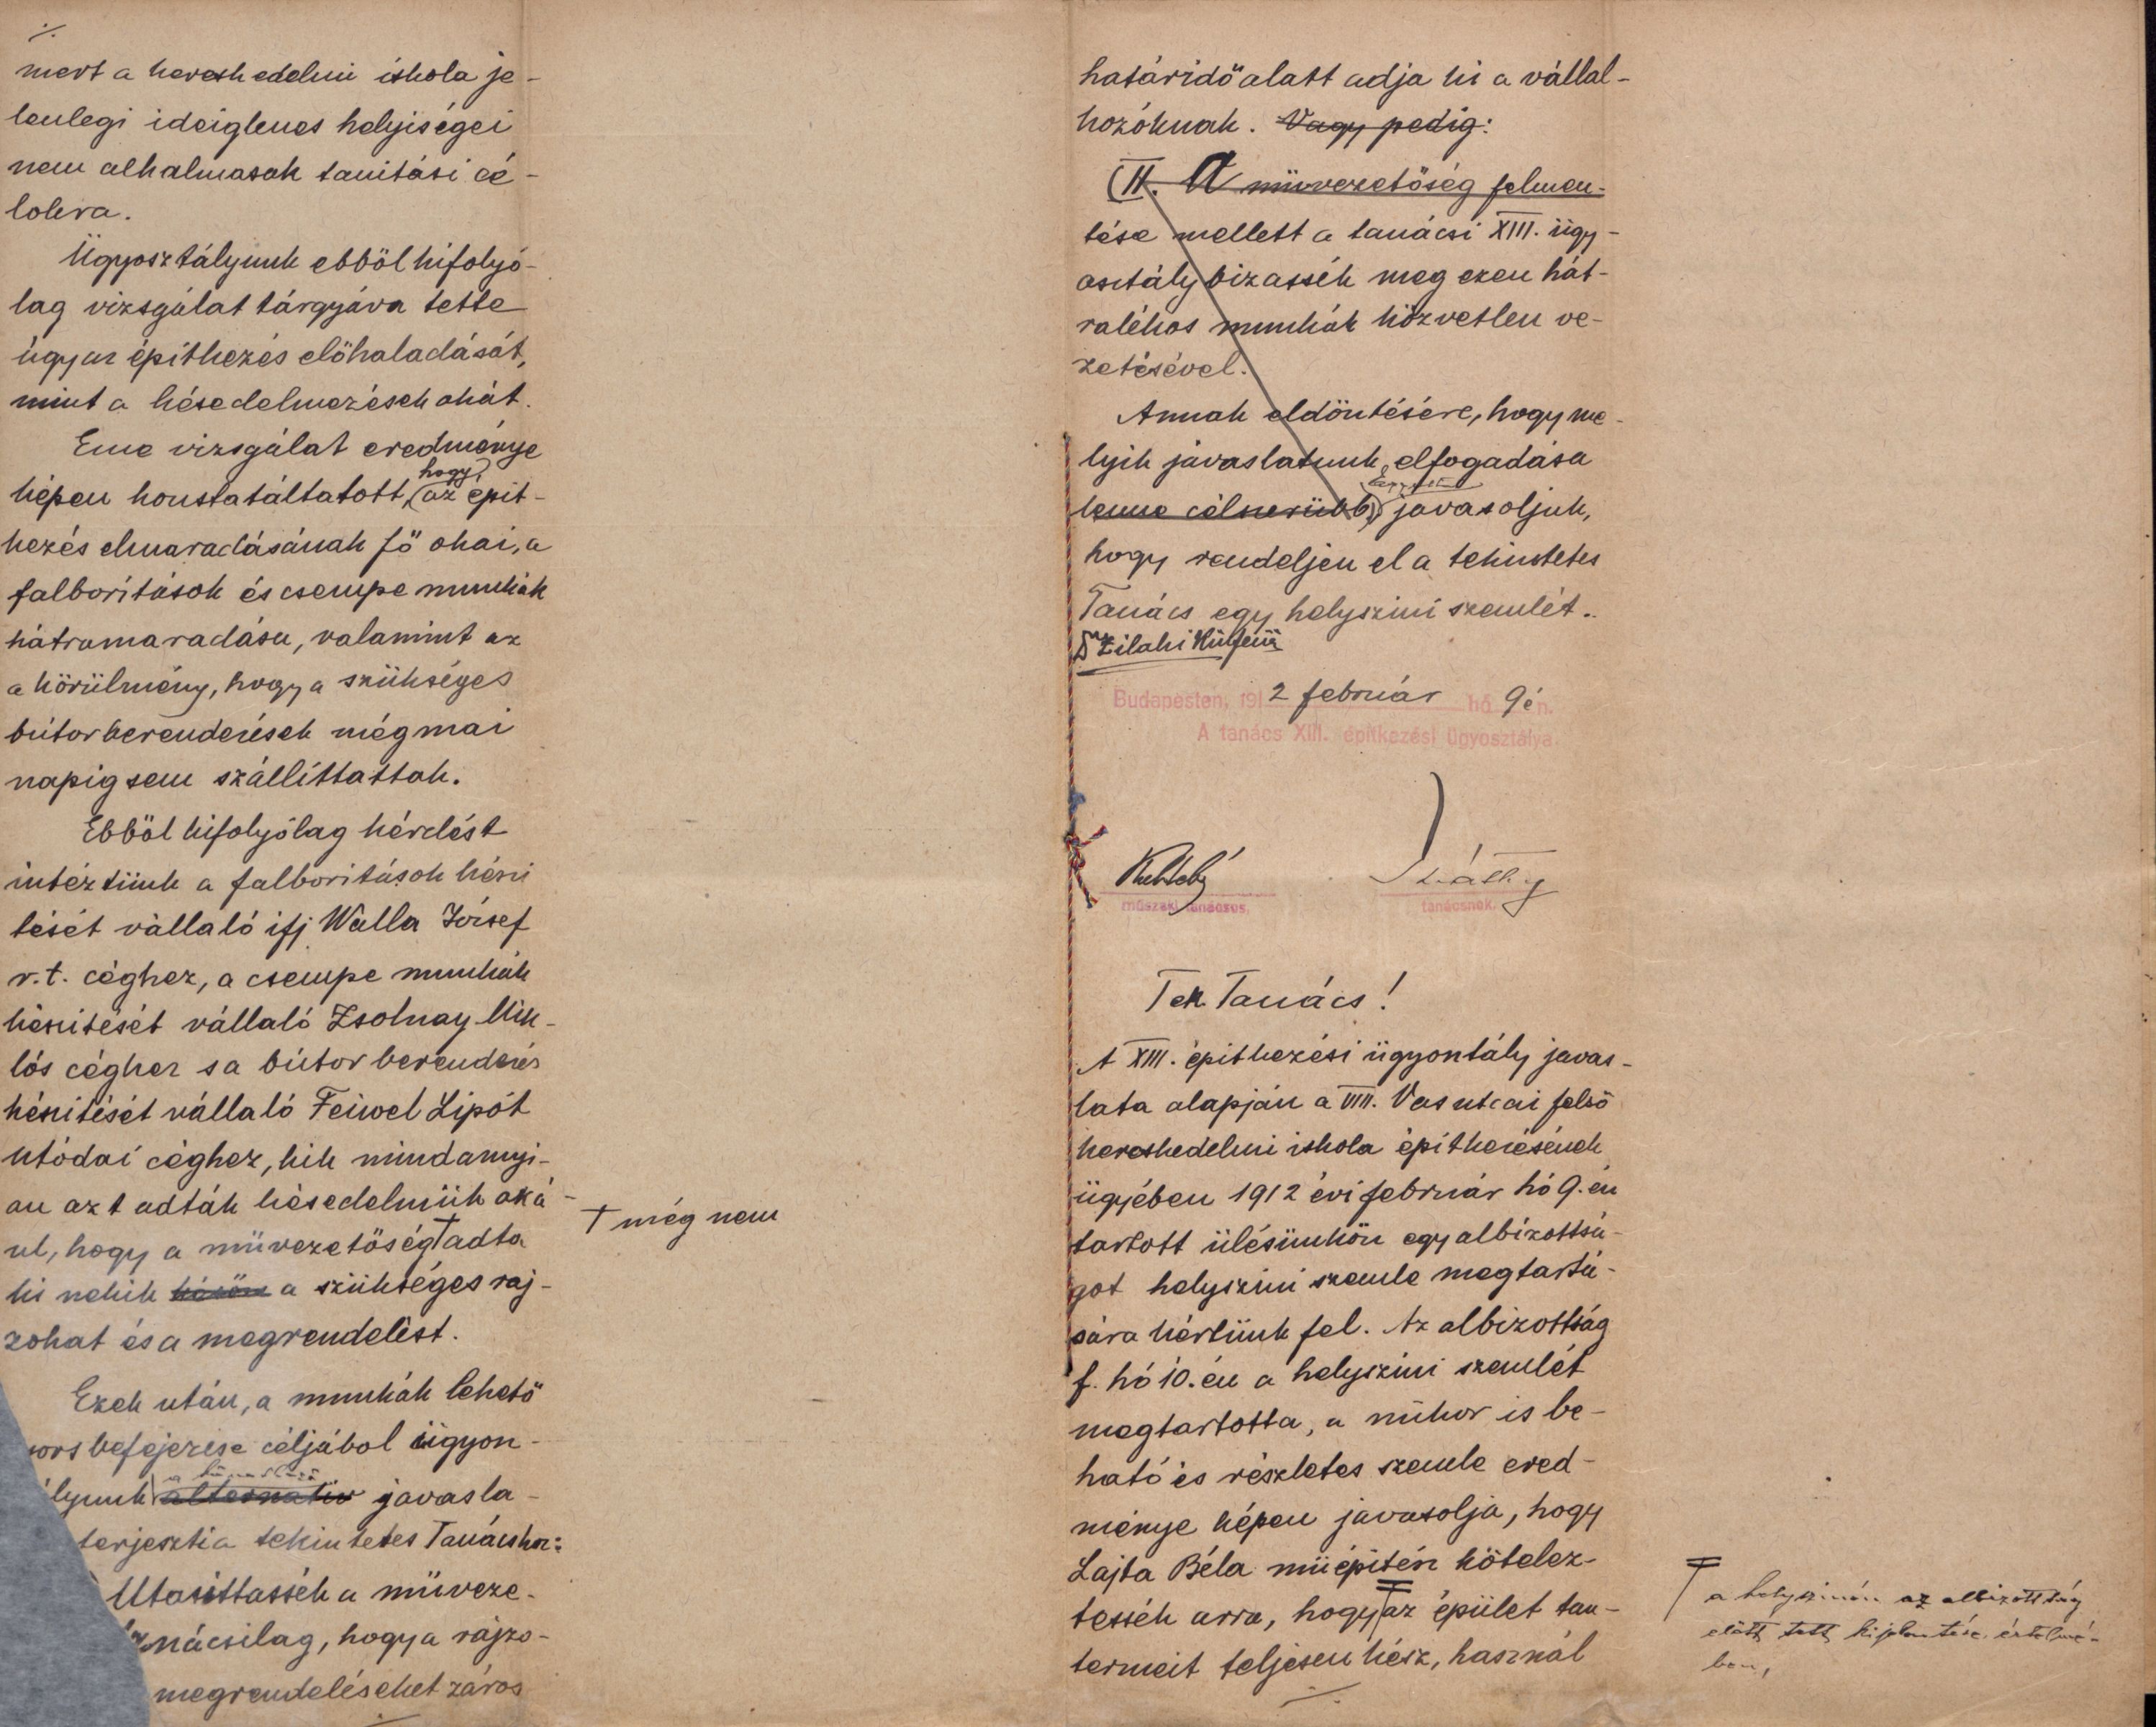 ./.
mert a kereskedelmi iskola je-
lenlegi ideiglenes helyiségei
nem alkalmasak tanitási cé-
lokra.
Ügyosztályunk ebből kifolyó-
lag vizsgálat tárgyáva tette
úgy az épitkezés előhaladását,
mint a késedelmezések okát.
Eme vizsgálat eredménye
hogy
képen konstatáltatott, az épit-
kezés elmaradásának fő okai, a
falboritások és csempe munkák
hátramaradása, valamint az
a körülmény, hogy a szükséges
bútorberendezések még mai
napig sem szállittattak.
Ebből kifolyólag kérdést
intéztünk a falboritások készi
tését vállaló ifj Walla József
r.t. céghez, a csempe munkák
készitését vállaló Zsolnay Mik-
lós céghez s a bútor berendezés
készitését vállaló Feiwel Lipót
utódai céghez, kik mindannyi-
an azt adták késedelmük oká-
ul, hogy a művezetőség † adta
ki nekik a szükséges raj-
zokat és a megrendelést.
† még nem
Ezek után, a munkák lehető
gors befejezése céljából ügyosz-
lyunk alternativ javasla-
terjeszti a tekintetes Tanácshoz:
Utasittassék a műveze-
tanácsilag, hogy a rajzo-
megrendeléseket záros
./.
határidő alatt adja ki a vállal-
kozóknak. Vagy pedig:
(II. A művezetőség felmen-
tése mellett a tanácsi XIII. ügy-
osztály bizassék meg ezen hát-
ralékos munkák közvetlen ve-
zetésével.
Annak eldöntésére, hogy me-
lyik javaslatunk elfogadása
lenne célszerübb, javasoljuk,
hogy rendeljen el a tekintetes
Tanács egy helyszini szemlét.
Budapesten, 1912 február hó 9 én.
A tanács XIII. épitkezési ügyosztálya.
műszaki tanácsos.
tanácsnok.
Tek. Tanács!
A XIII. épitkezési ügyosztály javas-
lata alapján a VIII. Vas utcai felső
kereskedelmi iskola épitkezésének
ügyében 1912 évi február hó 9.én
tartott ülésünkön egy albizottsá-
got helyszini szemle megtartá-
sára kértünk fel. Az albizottság
f. hó 10.én a helyszini szemlét
megtartotta, a mikor is be-
ható és részletes szemle ered-
ménye képen javasolja, hogy
Lajta Béla müépitész kötelez-
tessék arra, hogy az épület tan-
termeit teljesen kész, használ
./.
a helyszinén az albizottság
előtt tett kijelentése értelmé-
ben,